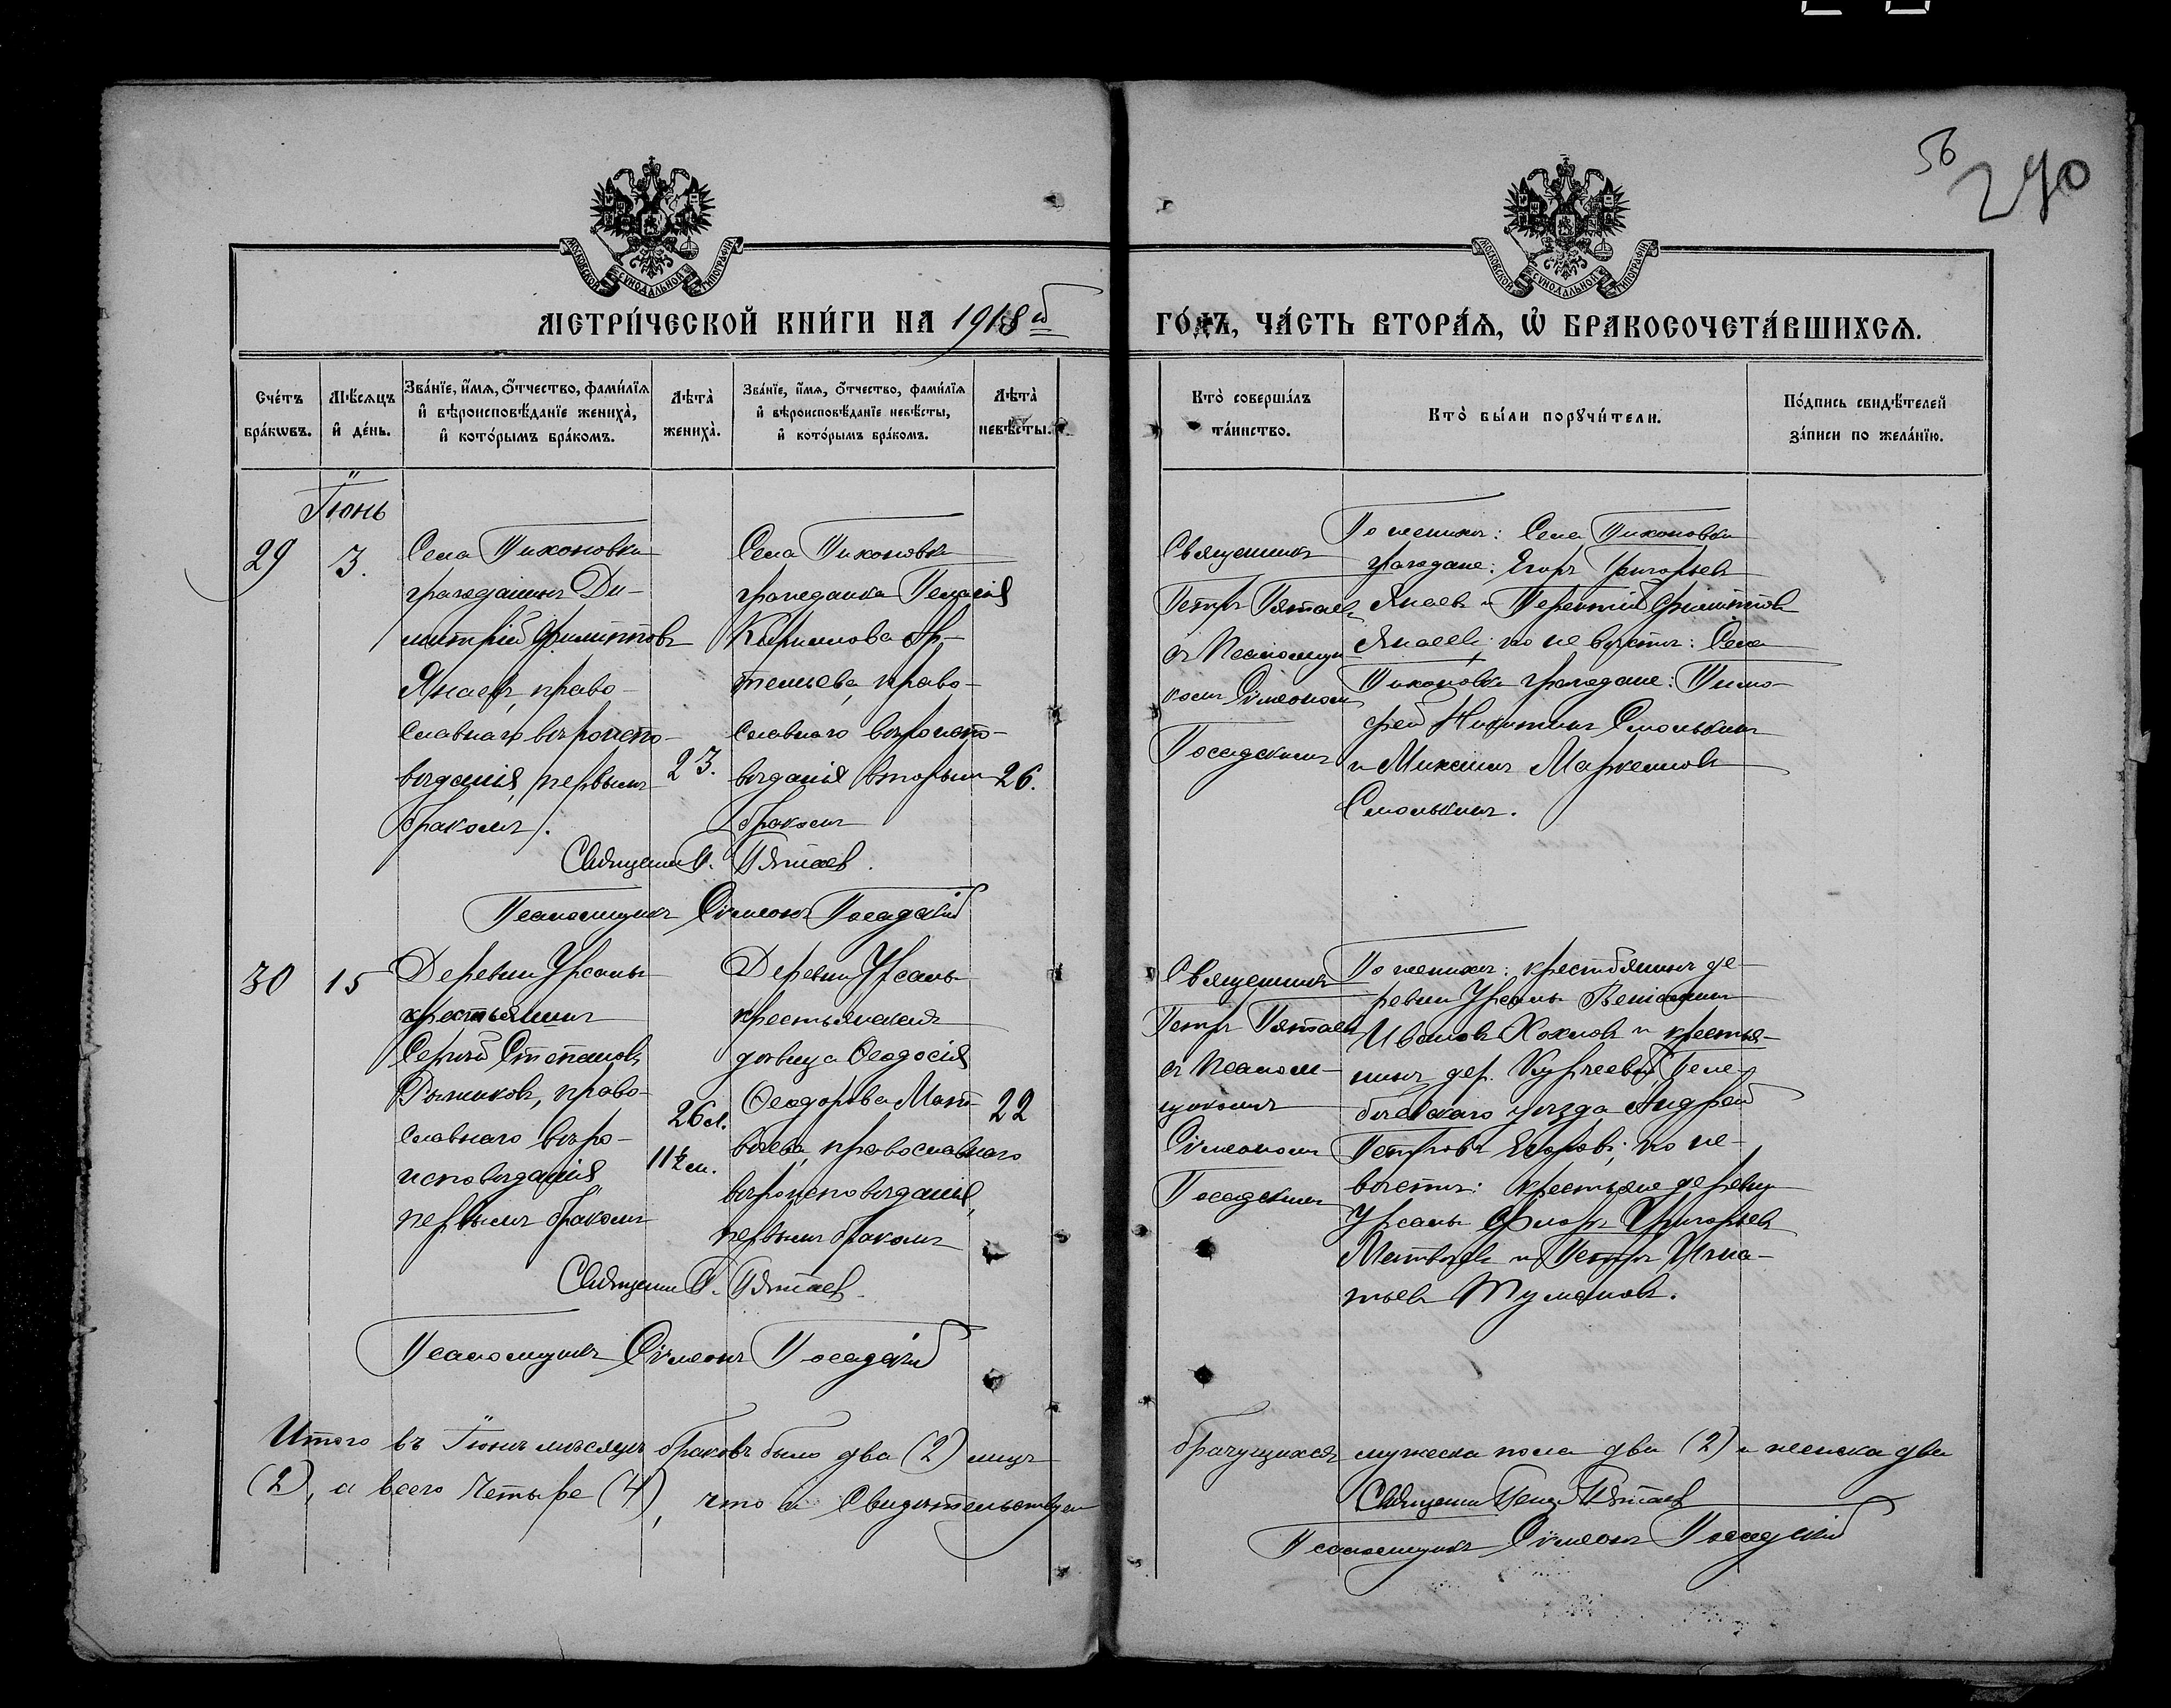 56
290
МОСКОВСКОЙ СѴНОДАЛЬНОЙ ТИПОГРАФІИ
МОСКОВСКОЙ СѴНОДАЛЬНОЙ ТИПОГРАФІИ
МЕТРИ́ЧЕСКОЙ КНИ́ГИ НА 1918й
ГО́ДЪ, ЧА́СТЬ ВТОРА́Я, Ѡ҆ БРАКОСОЧЕТА́ВШИХСѦ.
Сче́тъ бра́кѡвъ.
Мѣ́сяцъ и҆ де́нь.
Зва́нїе, и҆́мѧ, ѻ҆́тчество, фами́лїѧ
и҆ вѣроисповѣ́данїе жениха̀,
и҆ кото́рымъ бра́комъ.
Лѣта̀ жениха̀.
Зва́нїе, и҆́мѧ, ѻ҆́тчество, фами́лїѧ
и҆ вѣроисповѣ́данїе невѣ́сты,
и҆ кото́рымъ бра́комъ.
Лѣта̀ невѣ́сты.
Кто̀ соверша́лъ та́инство.
Кто̀ бы́ли порꙋчи́тели.
По́дпись свидѣ́телей
за́писи по жела́нїю.
Іюнь
29
3.
Села Тихоновки
гражданинъ Ди-
митрій Филипповъ
Янаевъ, право-
славнаго вѣроиспо-
вѣданія, первымъ
бракомъ.
23.
Села Тихоновки
гражданка Пелагія
Кириллова
право-
славнаго вѣроиспо-
вѣданія вторымъ
бракомъ
26.
Священникъ
Петръ Пятаевъ
съ Псаломщи-
комъ Сѵмеономъ
Посадскимъ
По женихѣ: Села Тихоновки
граждане: Егоръ Григорьевъ
Янаевъ и Терентій Филипповъ
Янаевъ; по невѣстѣ: Села
Тихоновки граждане: Тимо-
фей Никитинъ Смолькинъ
и Михаилъ Маркелловъ
Смолькинъ.
Священник П. Пятаев.
Псаломщикъ Сѵмеонъ Посадскій
30
15
Деревни Урсалы
крестьянинъ
Сергій Степановъ
Рыжиковъ, право-
славнаго вѣро-
исповѣданія
первымъ бракомъ
26 л.
11½ м.
Деревни Урсалы
крестьянская
дѣвица Ѳеодосія
Ѳеодорова Мат-
вѣева, православнаго
вѣроисповѣданія,
первымъ бракомъ
22
Священникъ
Петръ Пятаевъ
съ Псалом-
щикомъ
Сѵмеономъ
Посадскимъ
По женихѣ: крестьянинъ де-
ревни Урсалы Веніаминъ
Ивановъ Хохловъ и крестья-
нинъ дер. Пеле-
беевскаго уѣзда Андрей
Петровъ Егоровъ; по не-
вѣстѣ: крестьяне деревни
Урсалы Флоръ Григорьевъ
Матвѣевъ и Петръ Игна-
тьевъ Тумановъ.
Священник П. Пятаев.
Псаломщикъ Сѵмеонъ Посадскій
Итого въ Іюнѣ мѣсяцѣ браковъ было два (2) лицъ
брачущихся мужеска пола два (2) и женска два
(2), а всего четыре (4), что и свидѣтельствуем
Священник Петр Пятаев
Псаломщикъ Сѵмеонъ Посадскій